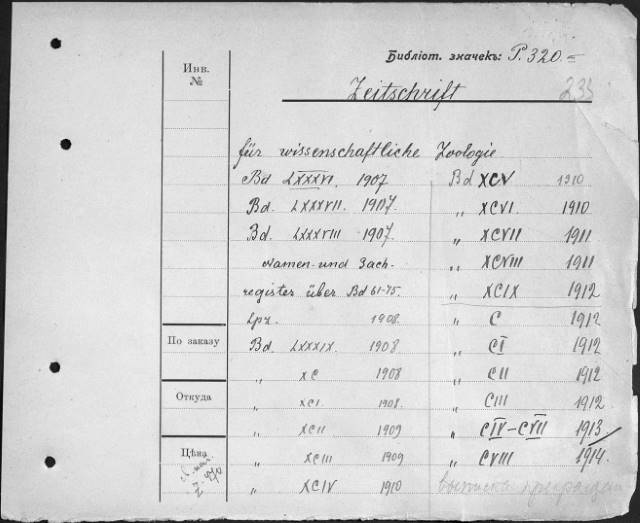 Библіот. значекъ: P. 320.=
Инв.
№
Zeitschrift
235
für wissenschaftliche Zoologie
Bd LXXXVI. 1907
Bd. LXXXVII. 1907.
Bd. LXXXVIII 1907.
Namen- und Sach-
register über Bd 61-75.
Lpz. 1908.
Bd. LXXXIX. 1908
„ XC 1908
„ XCI. 1908.
„ XCII 1909
„ XCIII 1909
„ XCIV 1910
Bd XCV 1910
„ XCVI. 1910
„ XCVII 1911
„ XCVIII 1911
„ XCIX 1912
„ C 1912
„ CI 1912
„ CII 1912
„ CIII 1912
„ CIV-CVII 1913
„ CVIII 1914.
выписка прекращен
По заказу
Откуда
Цѣна